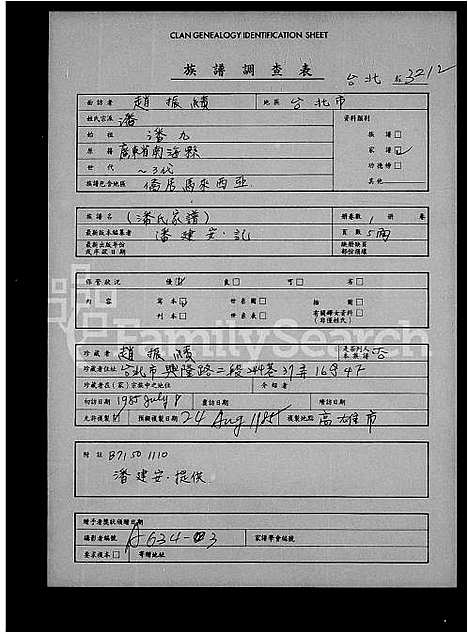 CLAN GENEALOGY IDENTIFICATION SHEET
族譜調查表
台北 3212
面訪者 趙振績 地區 台北市
姓氏宗派 潘 資料類別
始祖 潘九 族譜□
原籍 廣東省南海縣 家譜☑
世代 ~3代 功德榜□
族譜包含地區 僑居馬來西亞 其他
族譜名 (潘氏家譜) 冊卷數 1 冊 卷
最新版本編纂者 潘建安.記 頁數 5面
最新出版年份或序跋日期 缺冊缺頁部份損壞
保管狀況 優☑ 良□ 可□ 劣□
內容 寫本☑ 世系圖□ 插圖□
刊本□ 世系表□ 有關婦女資料(非僅姓氏)□
FamilySearch
珍藏者 趙振績 是否列入本族譜 否
珍藏者住址 台北市興隆路二段244巷37弄16号4F
珍藏者在(家)宗族中之地位 介紹者
初訪日期 1985 July 9 複訪日期 續訪日期
允許複製☑ 預擬複製日期 24 Aug 1985 複製地點 高雄市
附註 B7150 1110
潘建安.提供
贈予者獎狀頒贈日期
攝影者編號 A634-03 家譜學會編號
要求複本□ 寄贈地址